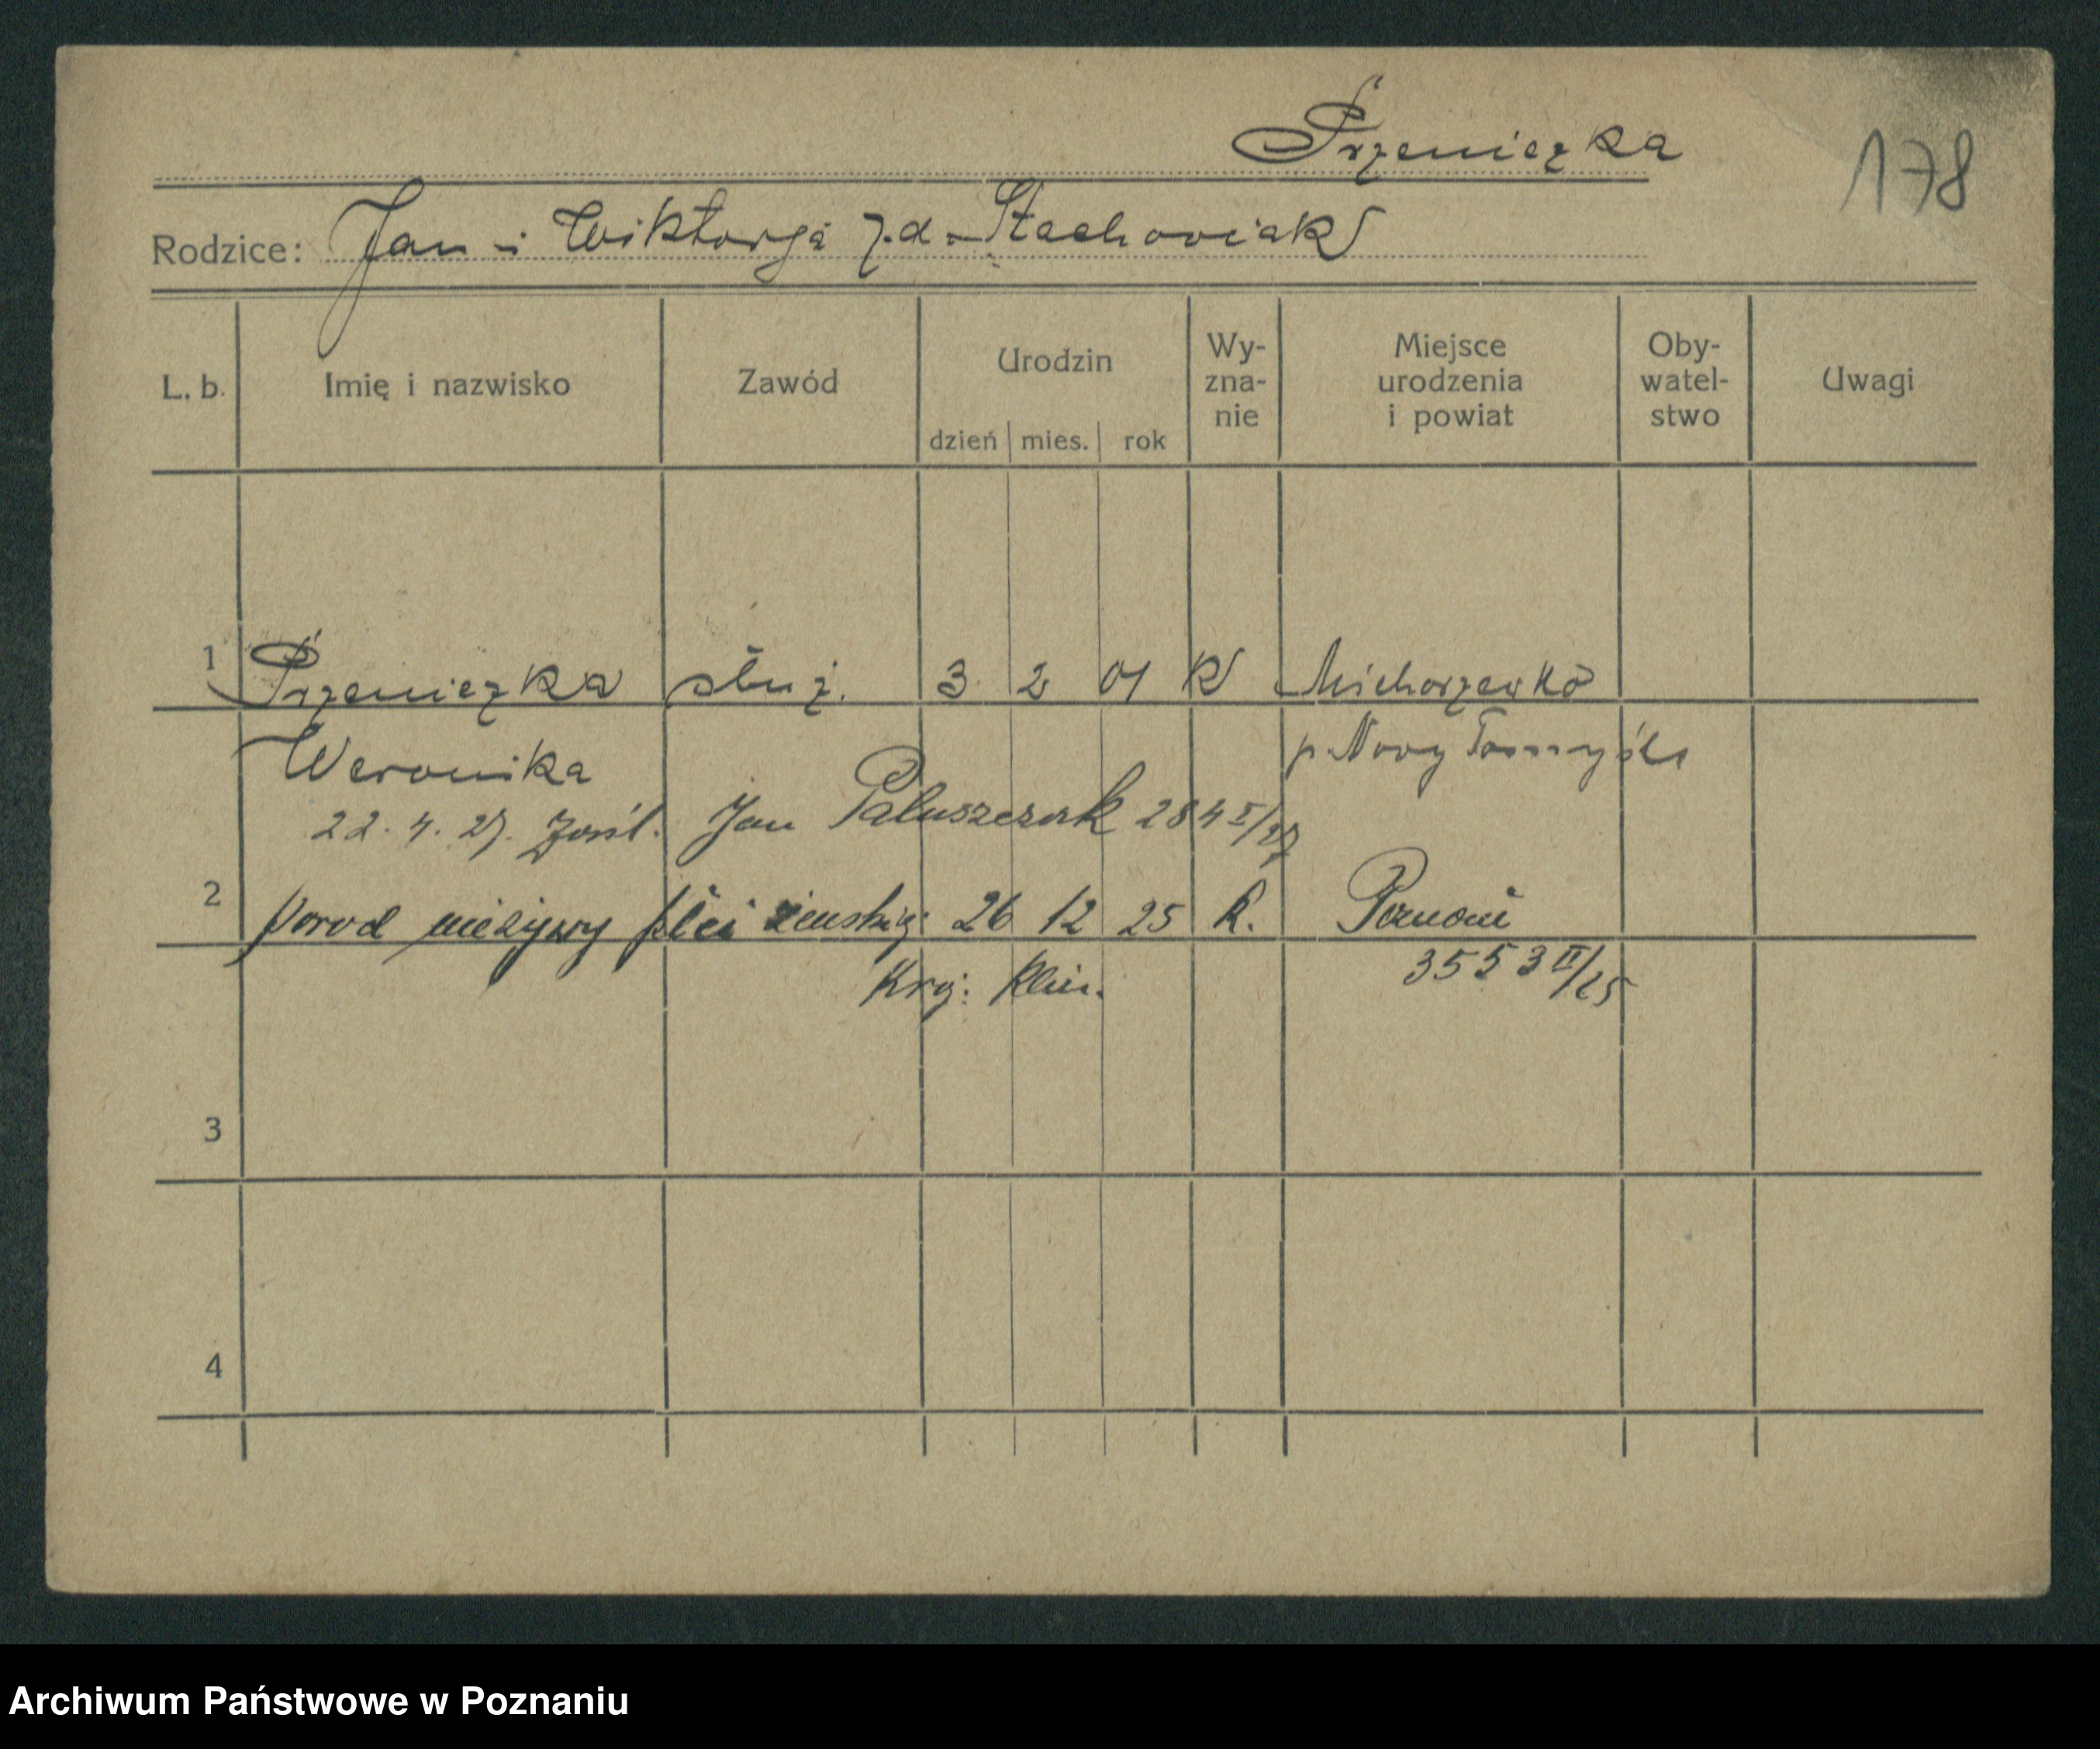 Przeniczka
178
Rodzice: Jan i Wiktorja z.d. Stachowiak
L. b. Imię i nazwisko Zawód Urodzin dzień mies. rok Wy-zna-nie Miejsce urodzenia i powiat Oby-watel-stwo Uwagi
1 Przeniczka służ. 3 2 01 K Michorzewko
Weronika p. Nowy Tomyśl
22. 4. 27. zaśl. Jan Paluszczak 284 I/27
2 porod nieżywy płci żenskiej 26 12 25 K. Poznań
Kraj. Klin. 3553 II/25
3
4
Archiwum Państwowe w Poznaniu